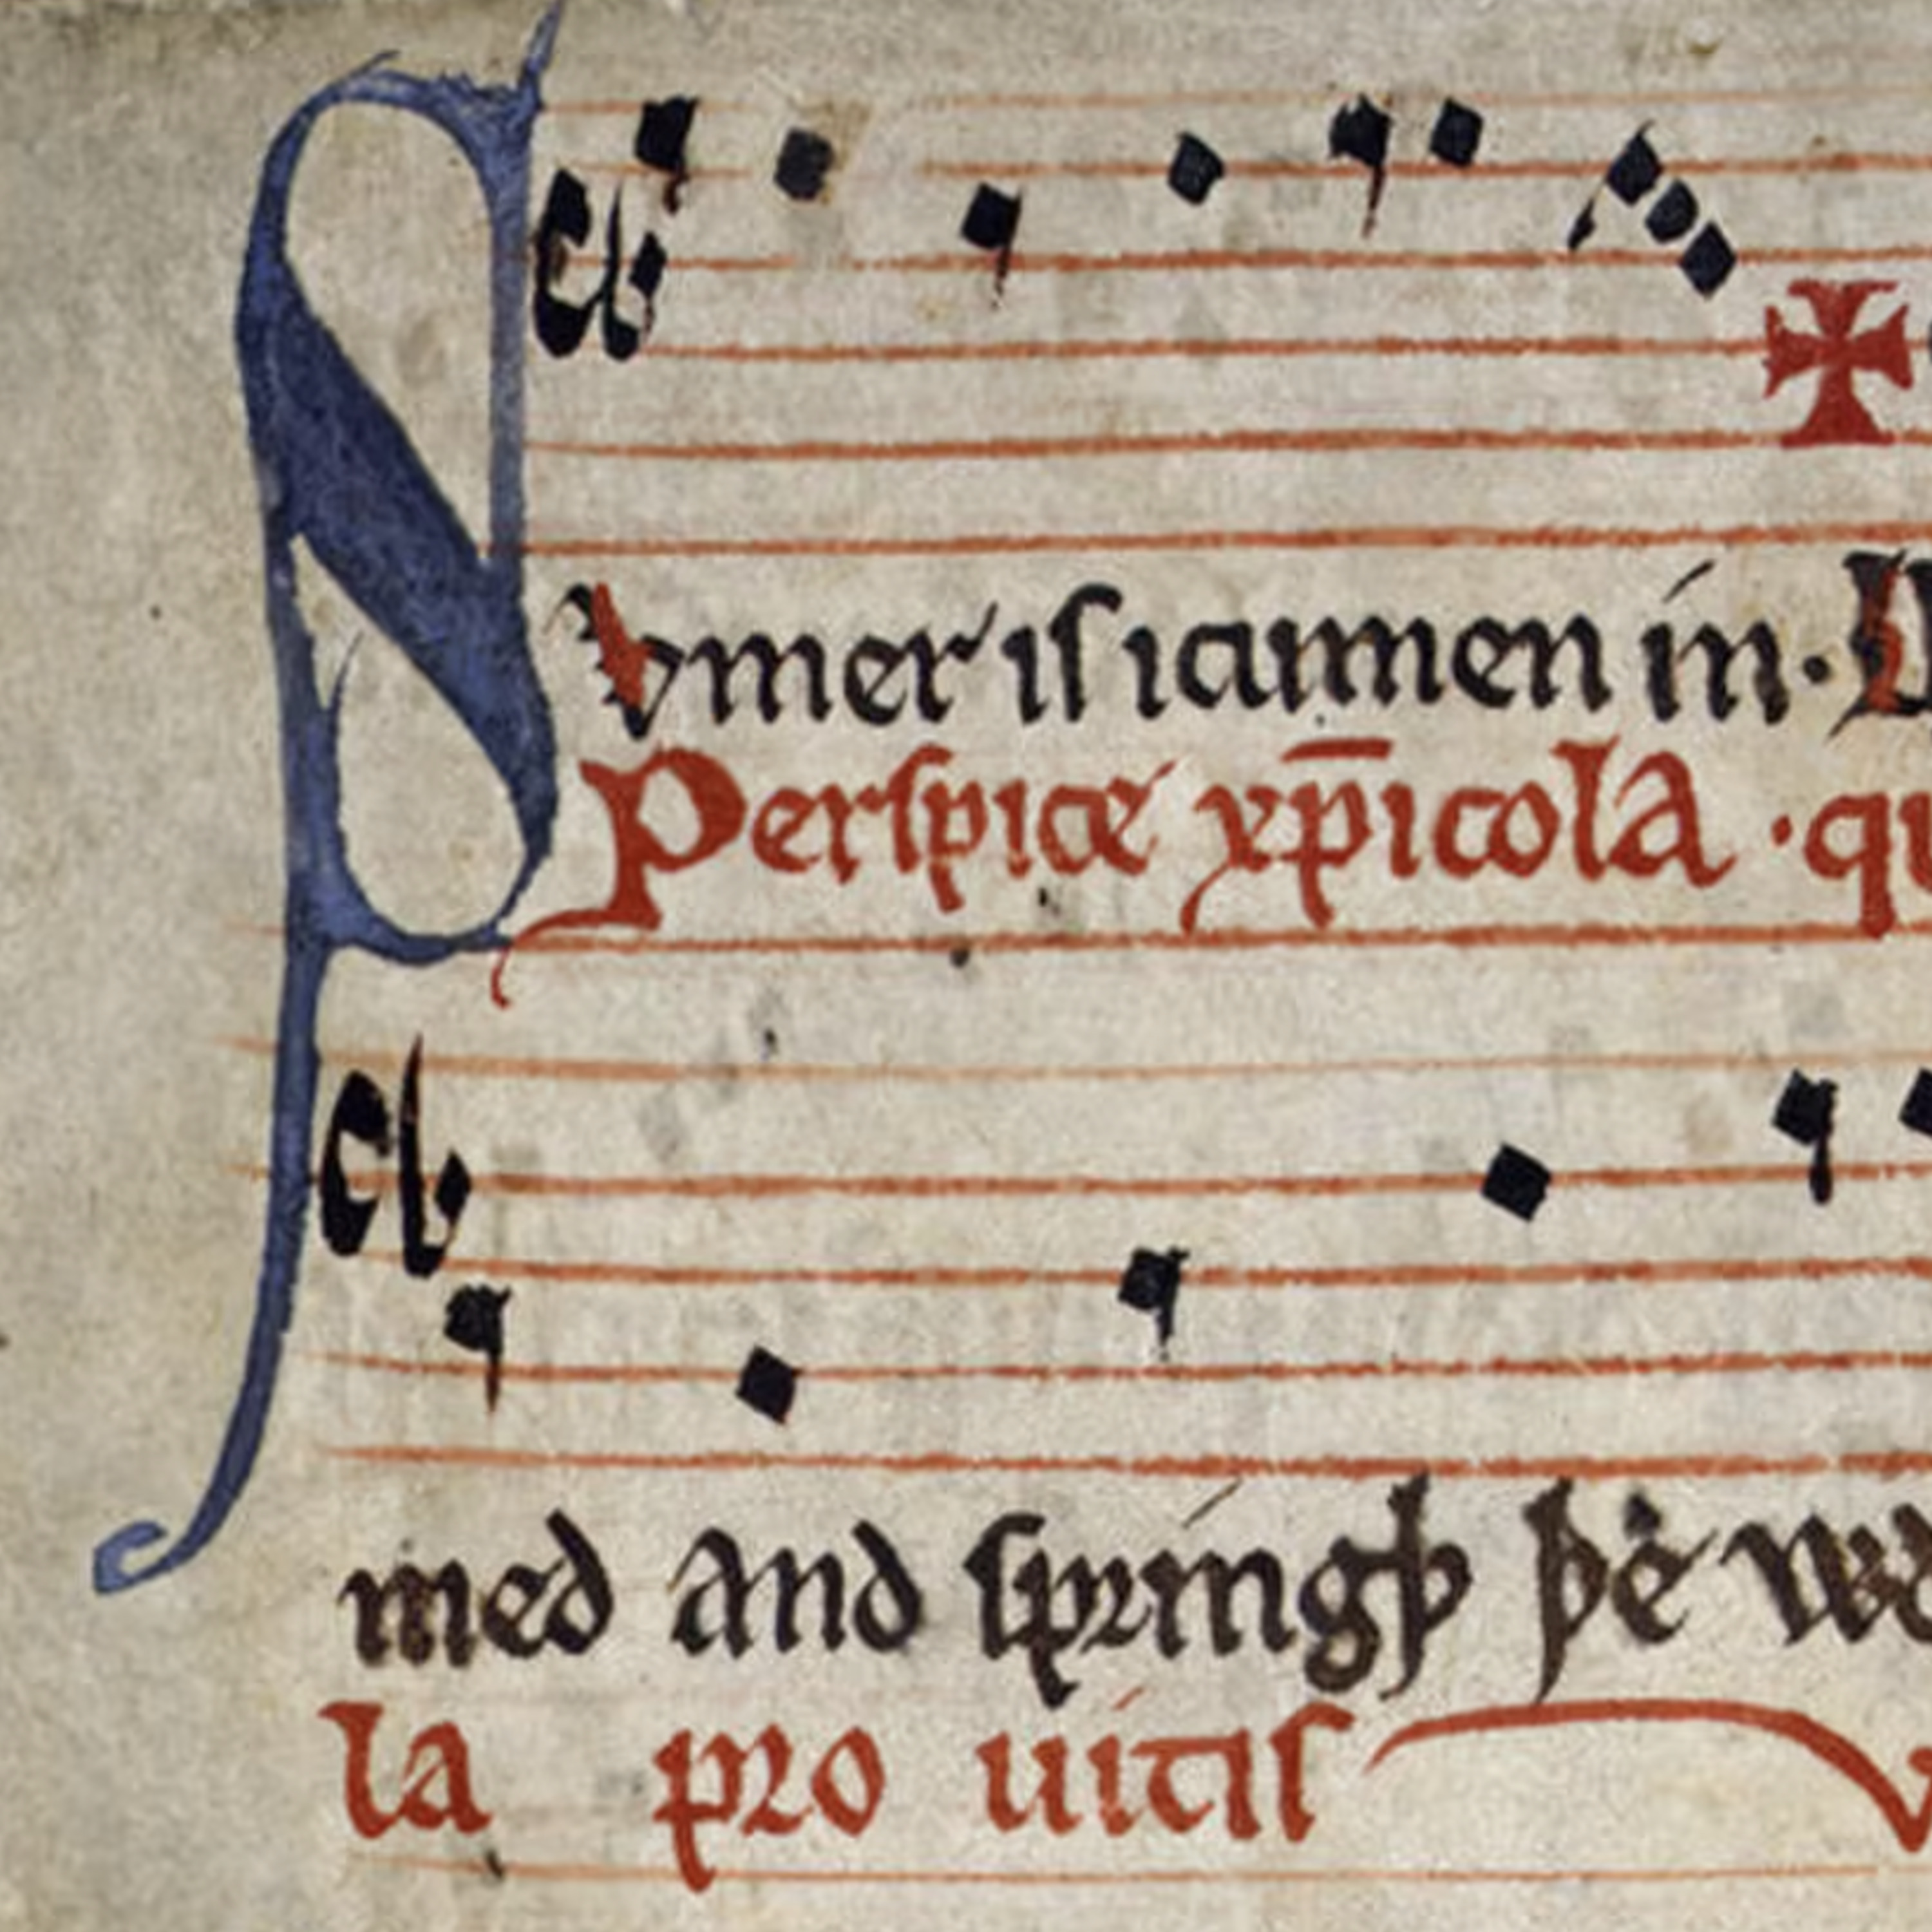 Svmer iſ icumen in· L
Perſpice xp̅icola ·qu
med and ſpringþ þe wd
la pro uitiſ